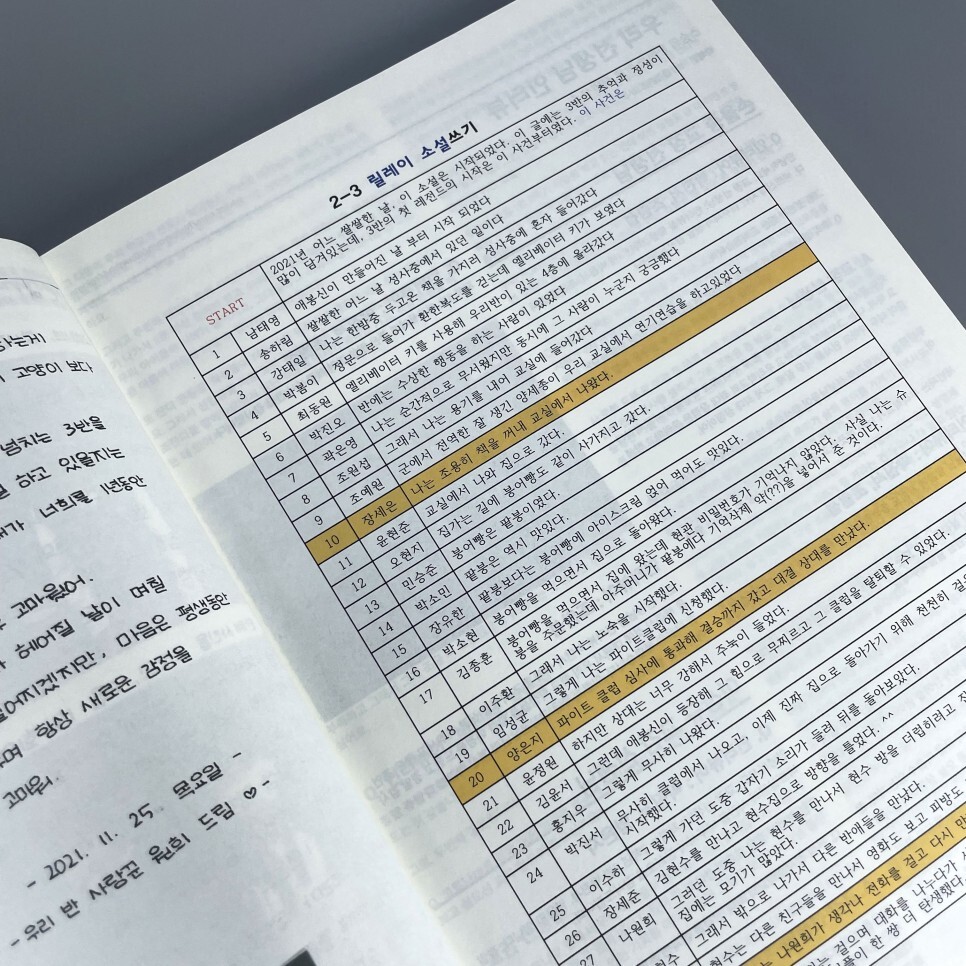 하는게
고양이 보다
넘치는 3반을
하고 있을지는
너희를 1년동안
고마웠어.
헤어질 날이 며칠
멀어지겠지만, 마음은 평생동안
항상 새로운 감정을
고마워.
- 2021. 11. 25. 목요일 -
- 우리 반 사랑꾼 원희 드림 ♡ -
2-3 릴레이 소설쓰기
START 2021년 어느 쌀쌀한 날, 이 소설은 시작되었다. 이 글에는 3반의 추억과 정성이
많이 담겨있는데, 3반의 첫 레전드의 시작은 이 사건부터였다. 이 사건은
1 남태영 애봉신이 만들어진 날 부터 시작 되었다
2 송하림 쌀쌀한 어느 날 성사중에서 있던 일이다
3 강태일 나는 한밤중 두고온 책을 가지러 성사중에 혼자 들어갔다
4 박봄이 정문으로 들어가 환한복도를 걷는데 엘리베이터 키가 보였다
5 최동원 엘리베이터 키를 사용해 우리반이 있는 4층에 올라갔다
6 박진오 반에는 수상한 행동을 하는 사람이 있었다
7 곽은영 나는 순간적으로 무서웠지만 동시에 그 사람이 누군지 궁금했다
8 조원섭 그래서 나는 용기를 내어 교실에 들어갔다
9 조예원 군에서 전역한 잘 생긴 양세종이 우리 교실에서 연기연습을 하고있었다
10 장세은 나는 조용히 책을 꺼내 교실에서 나왔다.
11 윤현준 교실에서 나와 집으로 갔다.
12 오현지 집가는 길에 붕어빵도 같이 사가지고 갔다.
13 민승준 붕어빵은 팥붕이였다.
14 박소민 팥붕은 역시 맛있다.
15 장유한 팥붕보다는 붕어빵에 아이스크림 얹어 먹어도 맛있다.
16 박소현 붕어빵을 먹으면서 집으로 돌아왔다.
17 김종훈 붕어빵을 먹으면서 집에 왔는데 현관 비밀번호가 기억나지 않았다. 사실 나는 슈
붕을 주문했는데 아주머니가 팥붕에다 기억삭제 약(??)을 넣어서 준 것이다.
18 이주환 그래서 나는 노숙을 시작했다.
19 임성균 그렇게 나는 파이트클럽에 신청했다.
20 양은지 파이트 클럽 심사에 통과해 결승까지 갔고 대결 상대를 만났다.
21 윤정원 하지만 상대는 너무 강해서 주눅이 들었다.
22 김윤서 그런데 애봉신이 등장해 그 힘으로 무찌르고 그 클럽을 탈퇴할 수 있었다.
23 홍지우 그렇게 무사히 나왔다.
24 박진서 무사히 클럽에서 나오고, 이제 진짜 집으로 돌아가기 위해 천천히 걸
시작했다.
25 이수하 그렇게 가던 도중 갑자기 소리가 들려 뒤를 돌아보았다.
26 장세준 김현수를 만나고 현수집으로 방향을 틀었다. ^^
27 나원희 그러던 도중 나는 현수를 만나서 현수 방을 더럽히려고
집에는 모기가 많았다.
현수 그래서 밖으로 나가서 다른 반애들을 만났다.
현수는 다른 친구들을 만나서 영화도 보고 피방도
나원희가 생각나 전화를 걸고 다시 만
는 걸으며 대화를 나누다가
이 한 쌍 더 탄생했다.